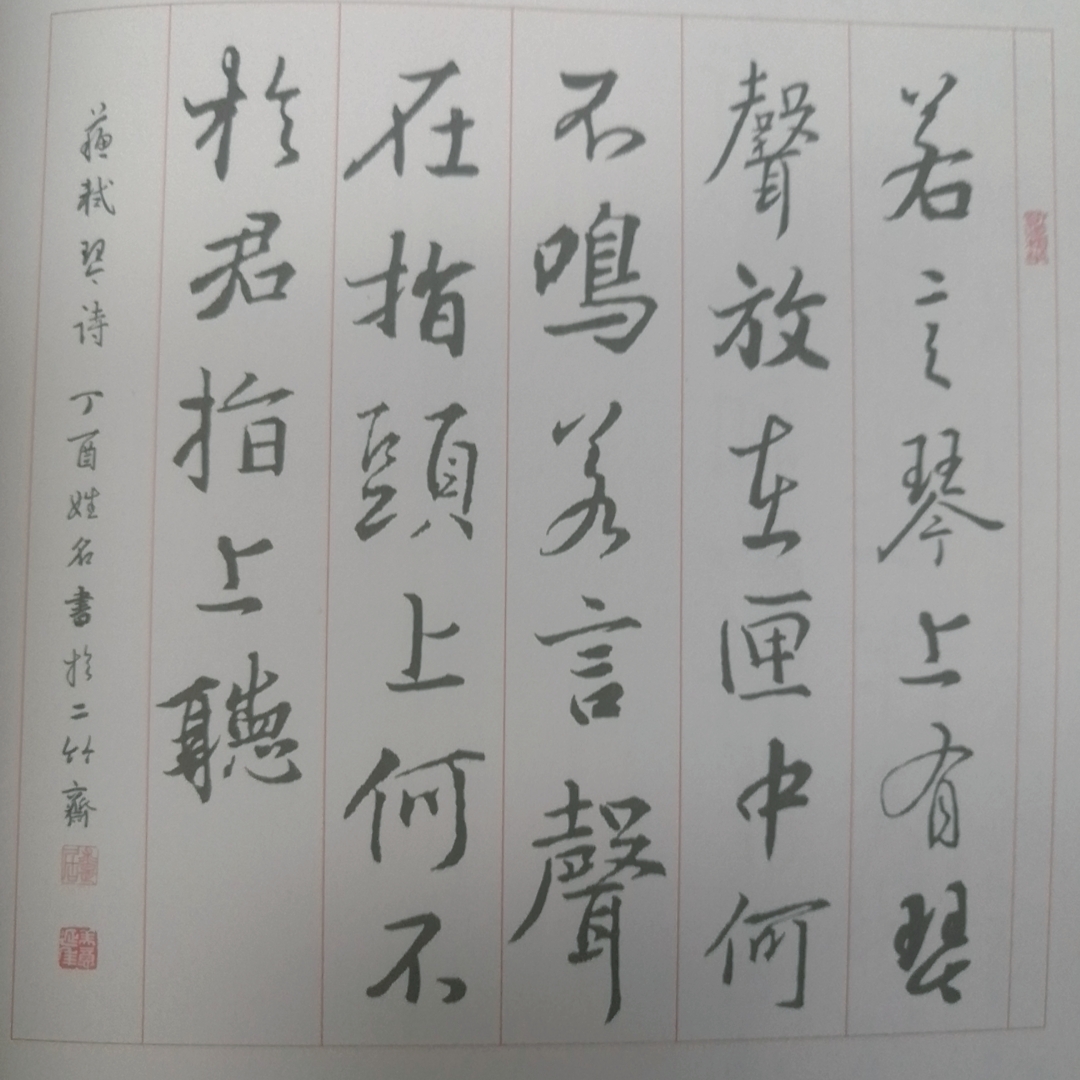 若言琴上有琴
聲放在匣中何
不鳴若言聲
在指頭上何不
於君指上聽
蘇軾琴诗 丁酉姓名書於二竹齋